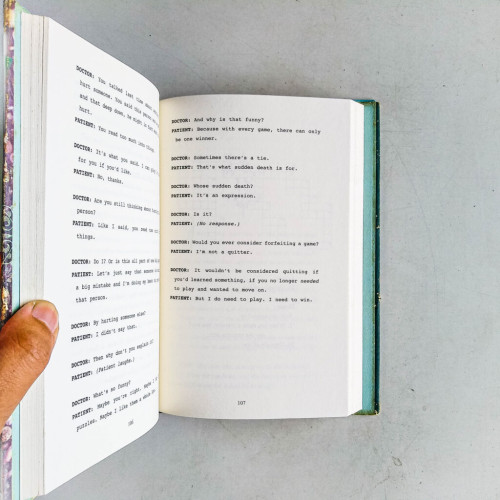 DOCTOR: You talked last time about
hurt someone. You said this person
and that deep down, he might
hurt.
PATIENT: You read too much into things.
DOCTOR: It's what you said. I can
for you if you'd like.
PATIENT: No, thanks.
DOCTOR: Are you still thinking about
person?
PATIENT: Like I said, you read too
things.
DOCTOR: Do I? Or is this all part of
PATIENT: Let's just say that someone
a big mistake and I'm doing my best to
that person.
DOCTOR: By hurting someone else?
PATIENT: I didn't say that.
DOCTOR: Then why don't you explain it?
PATIENT: (Patient laughs.)
DOCTOR: What's so funny?
PATIENT: Maybe you're right, maybe I
puzzles. Maybe I like them a whole
106
DOCTOR: And why is that funny?
PATIENT: Because with every game, there can only
be one winner.
DOCTOR: Sometimes there's a tie.
PATIENT: That's what sudden death is for.
DOCTOR: Whose sudden death?
PATIENT: It's an expression.
DOCTOR: Is it?
PATIENT: (No response.)
DOCTOR: Would you ever consider forfeiting a game?
PATIENT: I'm not a quitter.
DOCTOR: It wouldn't be considered quitting if
you'd learned something, if you no longer needed
to play and wanted to move on.
PATIENT: But I do need to play. I need to win.
107